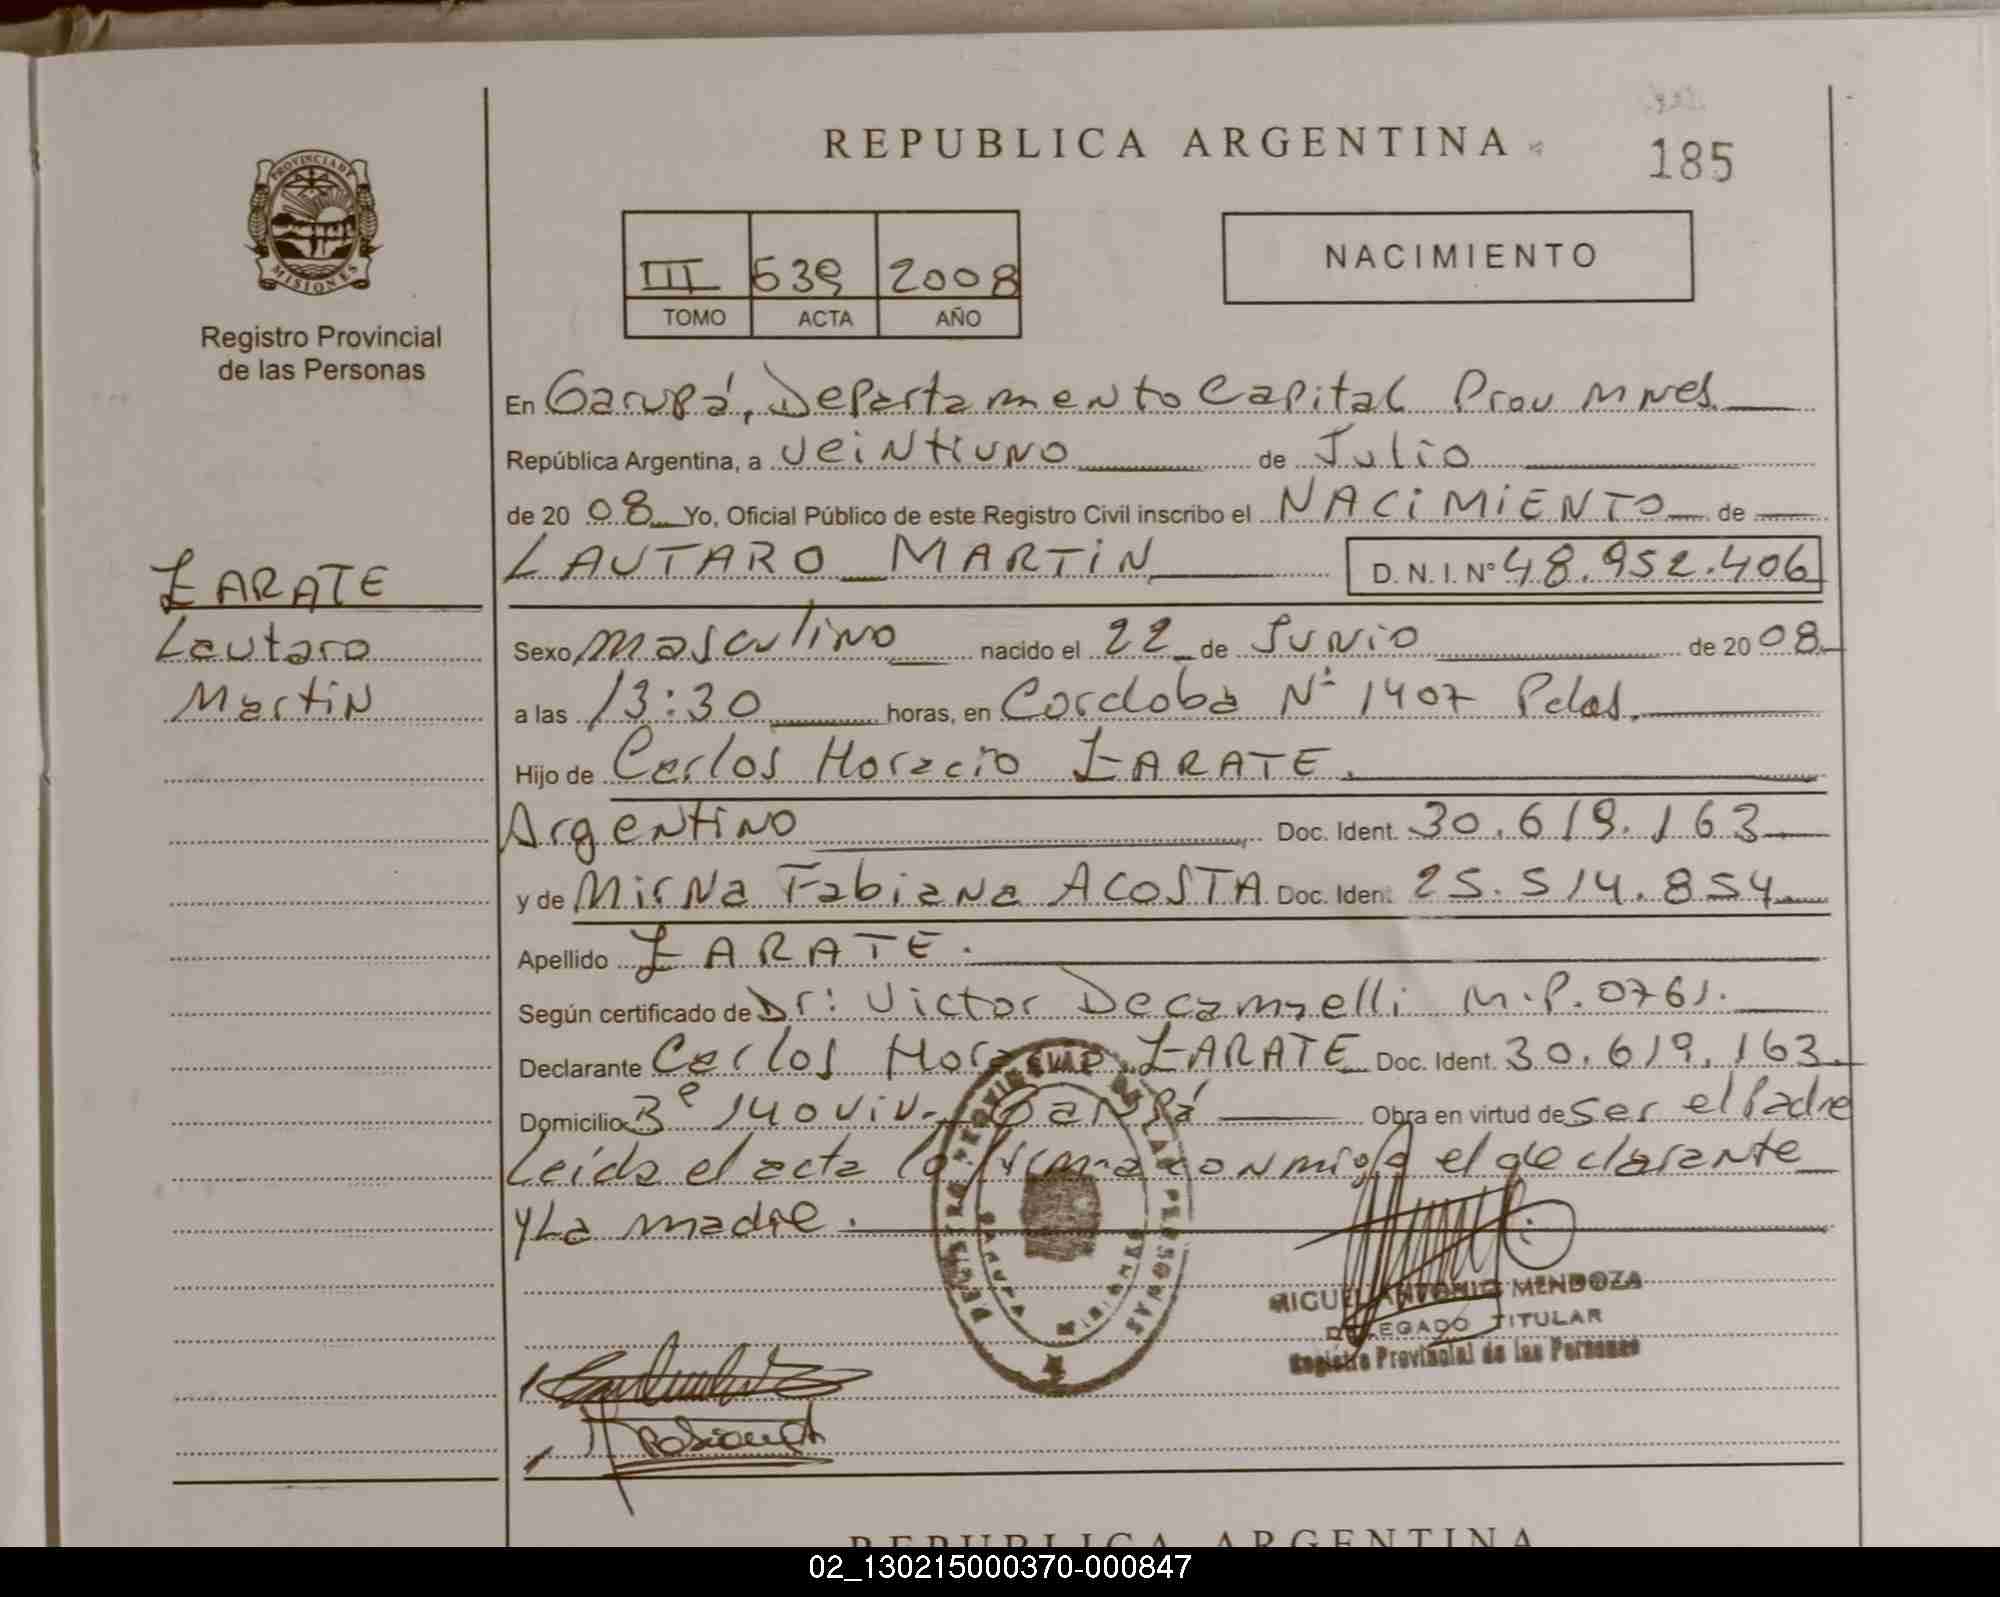 REPUBLICA ARGENTINA
185
PROVINCIA DE
MISIONES
Registro Provincial
de las Personas
III 639 2008
TOMO ACTA AÑO
NACIMIENTO
En Garupá, Departamento Capital Prov Mnes
República Argentina, a veintiuno de Julio
de 20 08 Yo, Oficial Público de este Registro Civil inscribo el NACIMIENTO de
LAUTARO MARTIN D. N. I. Nº 48.952.406
ZARATE
Lautaro
Martin
Sexo masculino nacido el 22 de Junio de 20 08
a las 13:30 horas, en Cordoba Nº 1407 Pdas.
Hijo de Carlos Horacio ZARATE.
Argentino Doc. Ident. 30.619.163
y de Mirna Fabiana ACOSTA Doc. Ident. 25.514.854
Apellido ZARATE.
Según certificado de Dr: Victor Decamzelli M.P. 0761.
Declarante Carlos Horacio ZARATE Doc. Ident. 30.619.163.
Domicilio 3º 140 viv. Garupá Obra en virtud de ser el Padre
Leída el acta la firma conmigo el declarante
y La madre.
MIGUEL ANTONIO MENDOZA
DELEGADO TITULAR
Registro Provincial de las Personas
REPUBLICA ARGENTINA
02_130215000370-000847